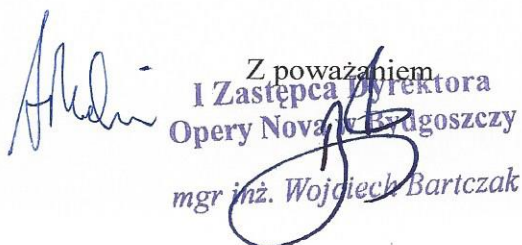 Z poważaniem
I Zastępca Dyrektora
Opery Nova w Bydgoszczy
mgr inż. Wojciech Bartczak